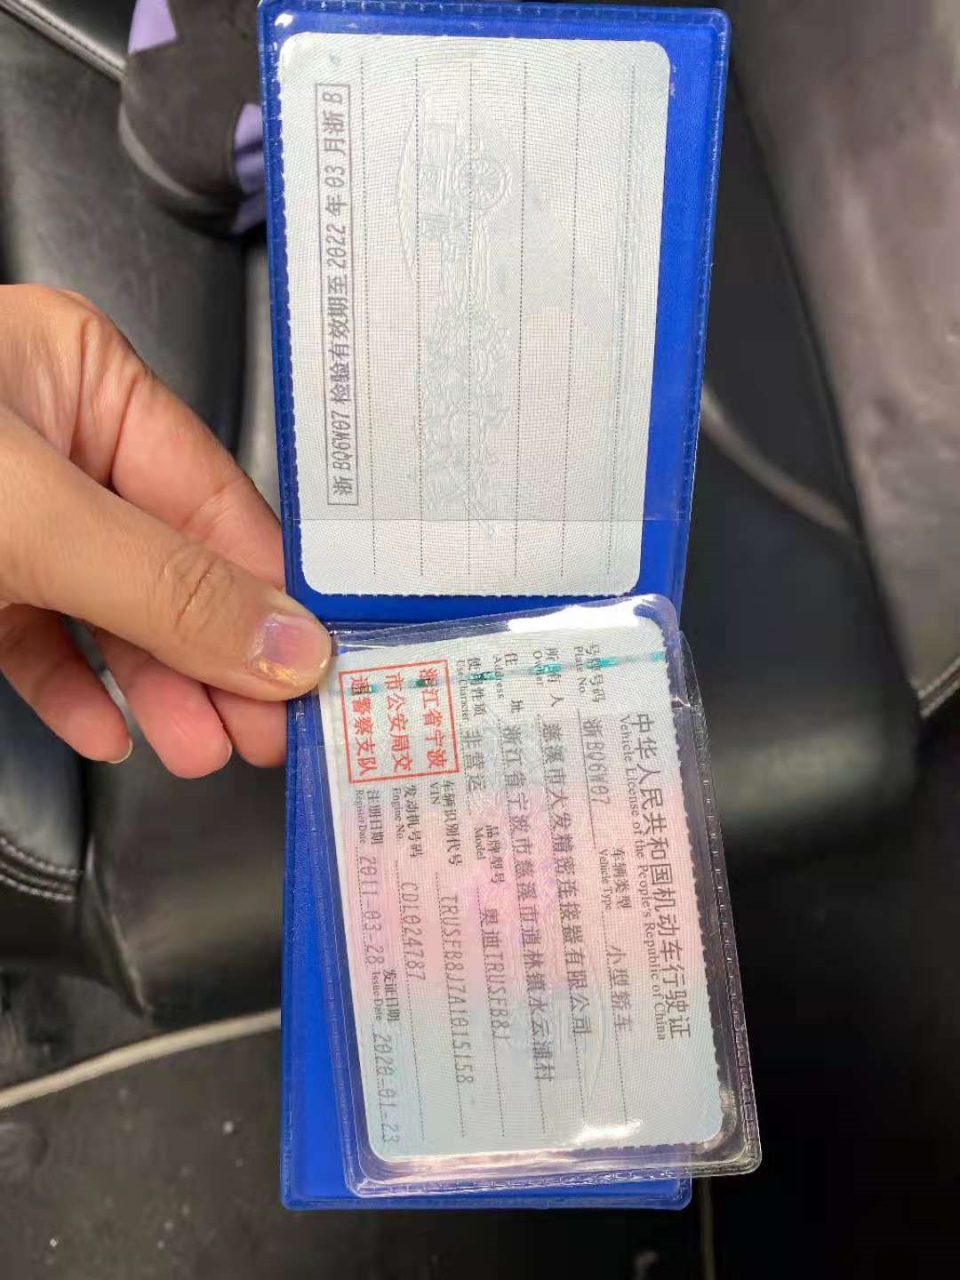 浙BQ6W07检验有效期至2022年03月浙B
中华人民共和国机动车行驶证
Vehicle License of the People's Republic of China
号牌号码 浙BQ6W07 车辆类型 小型轿车
Plate No. Vehicle Type
所有人 慈溪市大发精密连接器有限公司
Owner
住 址 浙江省宁波市慈溪市逍林镇水云浦村
Address
使用性质 非营运 品牌型号 奥迪TRUSFB8J
Use Character Model
浙江省宁波
市公安局交
通警察支队
车辆识别代号 TRUSFB8J7A1015158
VIN
发动机号码 CDL024787
Engine No.
注册日期 2011-03-28 发证日期 2020-01-23
Register Date Issue Date